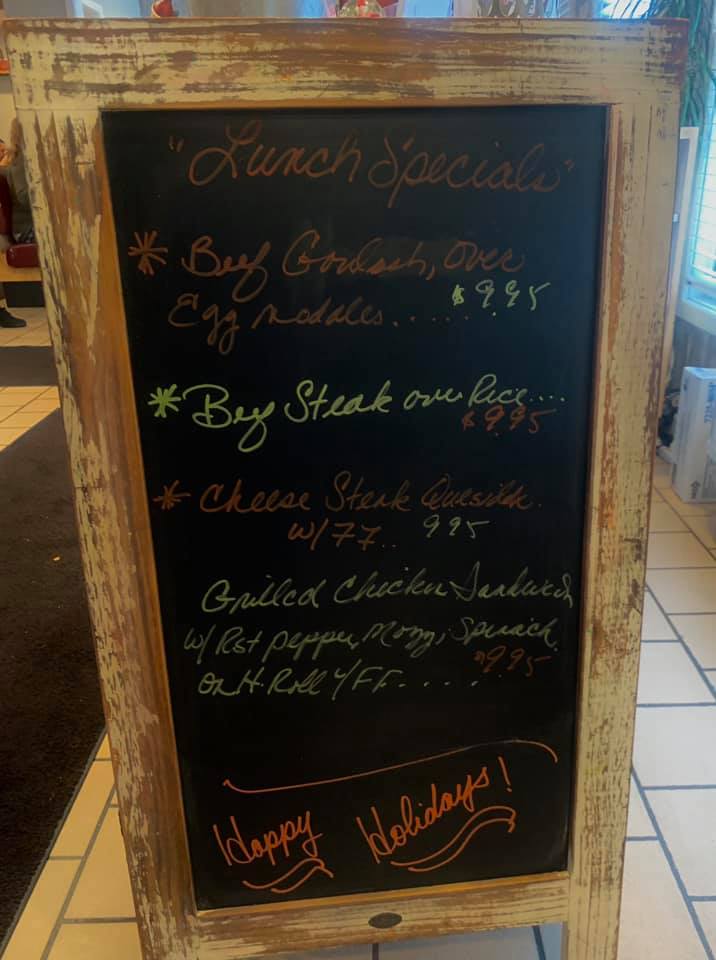 "Lunch Specials"
* Beef Goulash, over
Egg noodles..... $9.95
* Beef Steak over Rice....
$9.95
* Cheese Steak Quesilda.
w/ FF.. 995
Grilled Chicken Sandwich
w/ Rst pepper, Mozz, Spinach
on H. Roll w/ FF..... $995
Happy Holidays!